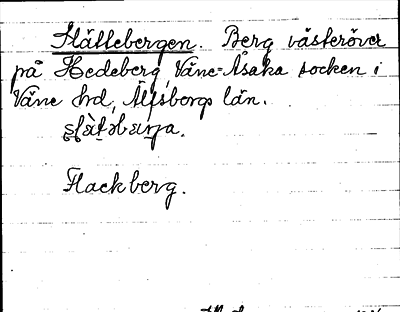 Slättebergen. Berg västeröver
på Hedeberg, Väne-Åsaka socken i
Väne hrd, Älfsborgs län.
Flackberg.